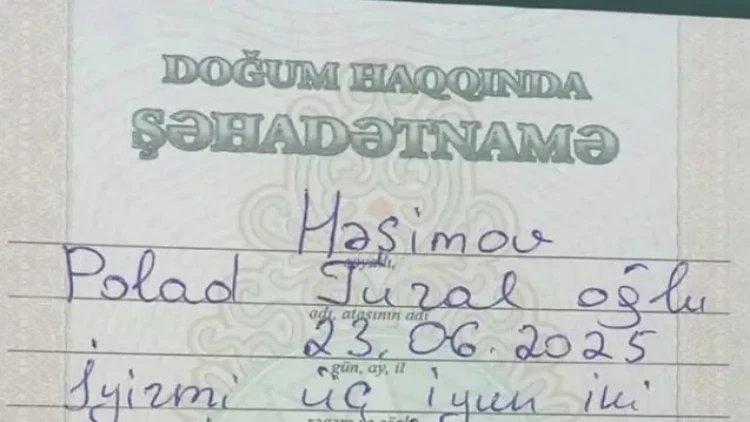 DOĞUM HAQQINDA
ŞƏHADƏTNAMƏ
Həşimov
soyadı,
Polad Tural oğlu
adı, atasının adı
23.06.2025
gün, ay, il
İyirmi üç iyun iki